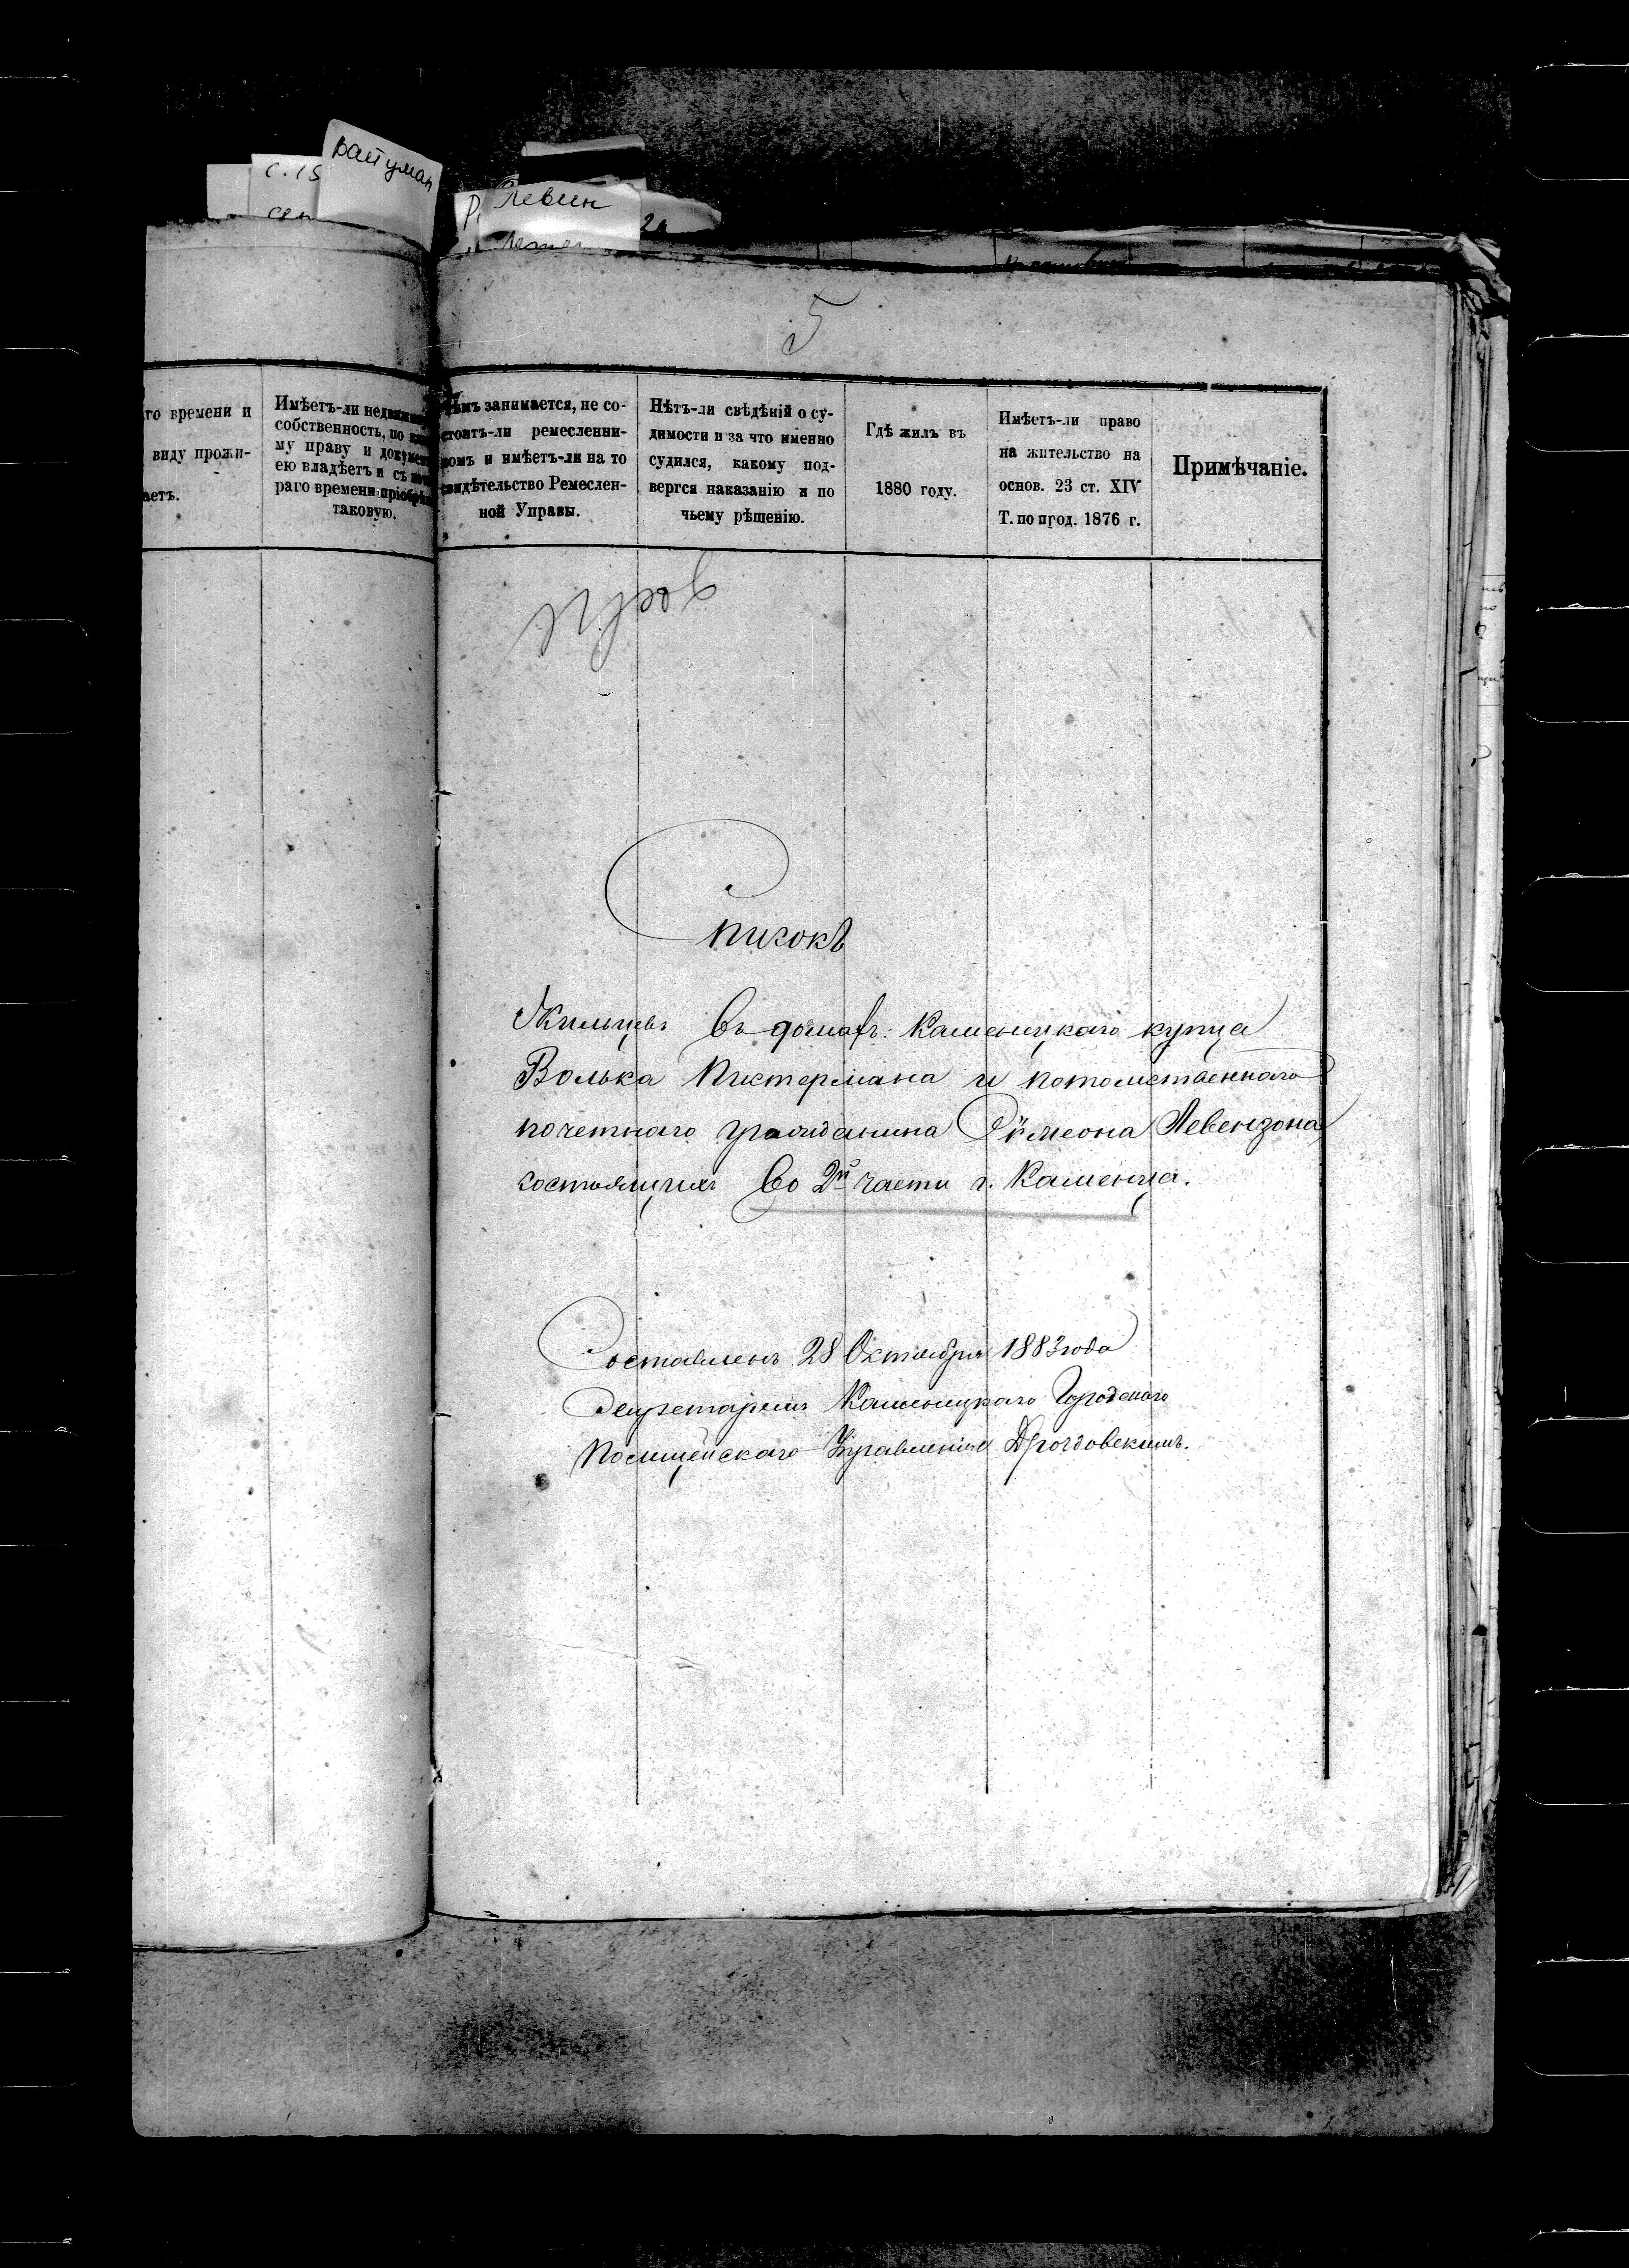 с. 15
Вайуман
Левин
5
го времени и
виду прожи-
аетъ.
Имѣетъ-ли
собственность, по
му праву и
ею владѣетъ и съ
раго времени
таковую.
занимается, не со-
стоитъ-ли ремесленни-
комъ и имѣетъ-ли на то
свидѣтельство Ремеслен-
ной Управы.
Нѣтъ-ли свѣдѣній о су-
димости и за что именно
судился, какому под-
вергся наказанію и по
чьему рѣшенію.
Гдѣ жилъ въ
1880 году.
Имѣетъ-ли право
на жительство на
основ. 23 ст. XIV
Т. по прод. 1876 г.
Примѣчаніе.
Списокъ
Жильцевъ въ домахъ: Каменецкаго купца
Волька Пиктермана и потомственнаго
почетнаго гражданина Симеона Левензона
состоящихъ во 2й части г. Каменца.
Составленъ 28 Октября 1883 года
Секретаремъ Каменецкаго Городскаго
Полицейскаго Управленія Дроздовскимъ.